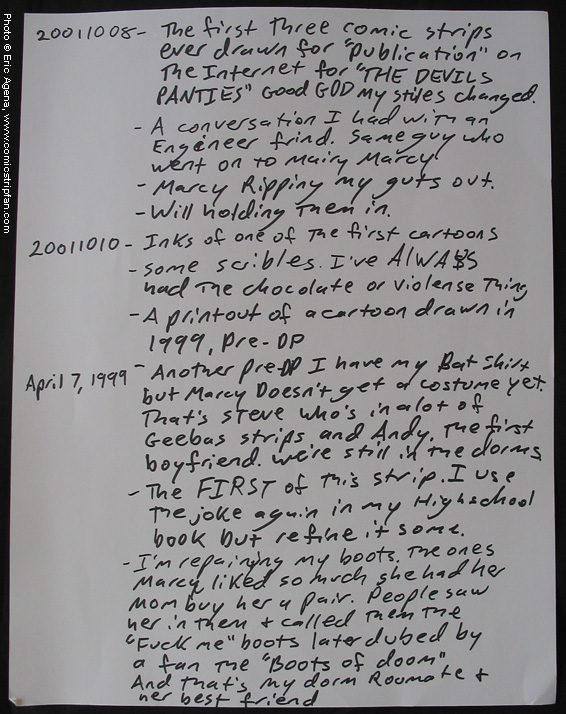 20011008- The first three comic strips
ever drawn for "publication" on
The Internet for "THE DEVILS
PANTIES" Good GOD my stiles changed.
- A conversation I had with an
Engineer frind. Same guy who
went on to Mairy Marcy
- Marcy Ripping my guts out.
- Will holding Them in.
20011010- Inks of one of The first cartoons
- some scribles. I've AlWAYS
had The chocolate or violense Thing
- A printout of a cartoon drawn in
1999, Pre-DP
April 7, 1999 - Another pre-DP I have my Bat Shirt
but Marcy Doesn't get a costume yet.
That's STEVE who's in alot of
Geebas strips and Andy. The first
boyfriend. we're still in the dorms
- The FIRST of this strip. I use
The joke again in my Highschool
book but refine it some.
- I'm repairing my boots. The ones
Marcy liked so much she had her
Mom buy her a pair. People saw
her in them + called Them The
"Fuck me" boots later dubed by
a fan The "Boots of doom"
And that's my dorm Roomate +
her best friend
Photo © Eric Agena, www.comicstripfan.com